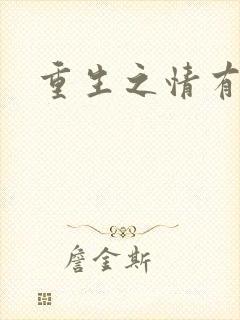 重生之情有
詹金斯